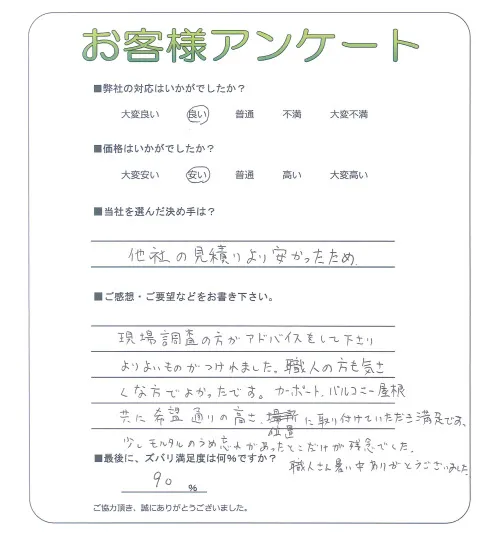 お客様アンケート
■弊社の対応はいかがでしたか？
大変良い 良い 普通 不満 大変不満
■価格はいかがでしたか？
大変安い 安い 普通 高い 大変高い
■当社を選んだ決め手は？
他社の見積りより安かったため.
■ご感想・ご要望などをお書き下さい。
現場調査の方がアドバイスをして下さり
よりよいものがつけれました。職人の方も気さ
くな方でよかったです。カーポート、バルコニー屋根
共に希望通りの高さ、場所に取り付けていただき満足です。
位置
少しモルタルのうめ忘れがあったとこだけが残念でした。
■最後に、ズバリ満足度は何%ですか？
職人さん暑い中ありがとうございました。
90 %
ご協力頂き、誠にありがとうございました。